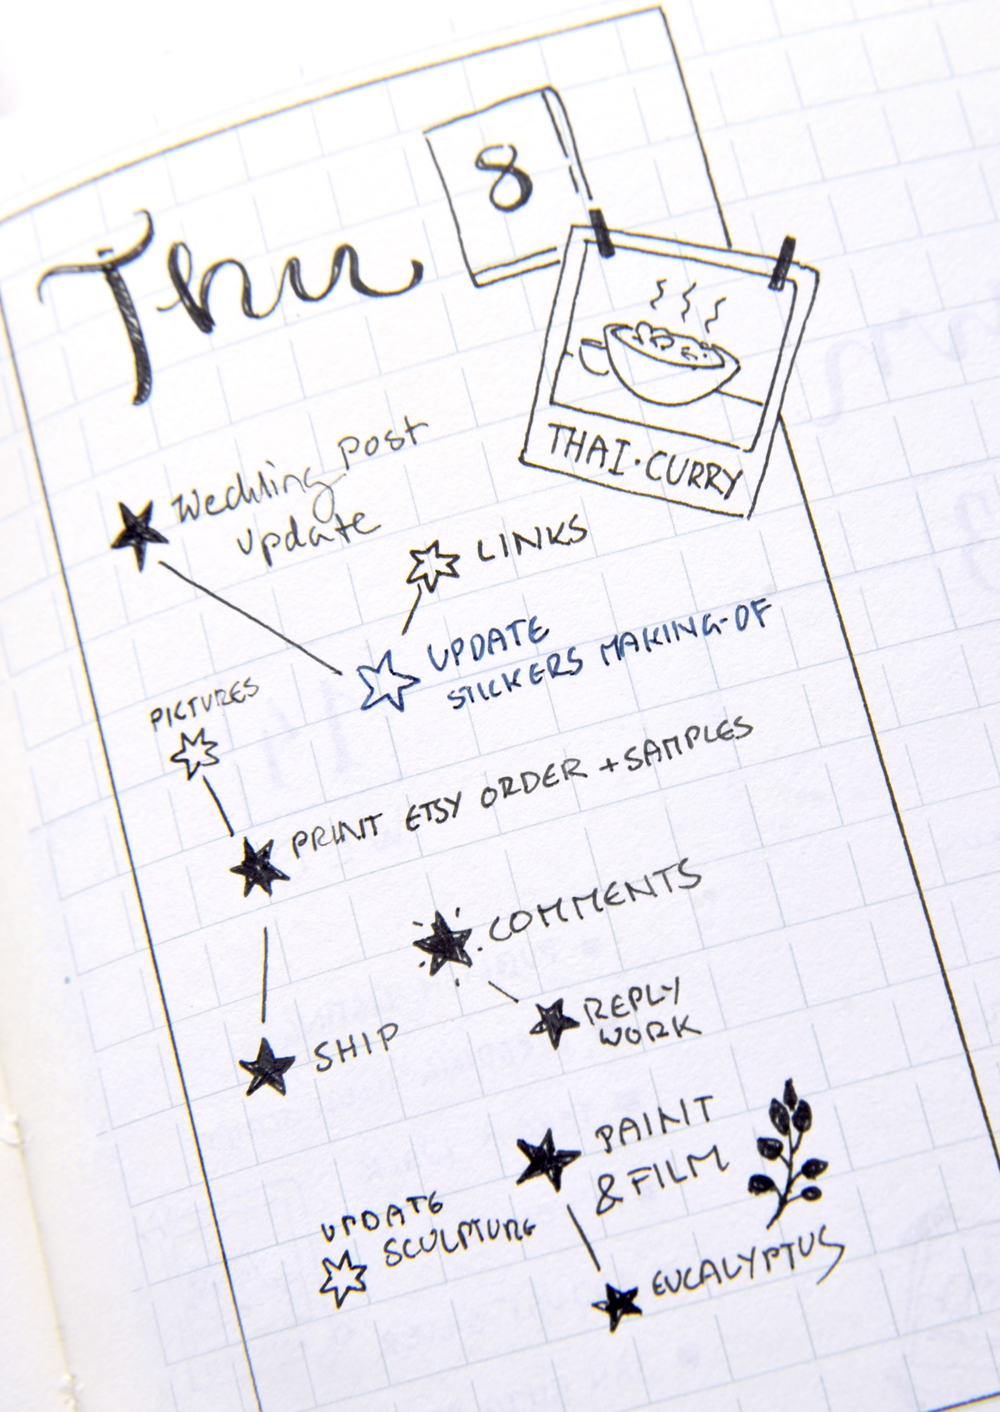 Thu
8
THAI·CURRY
Wedding Post
Update
LINKS
UPDATE
STICKERS MAKING-OF
PICTURES
PRINT ETSY ORDER + SAMPLES
COMMENTS
REPLY
WORK
SHIP
PAINT
& FILM
UPDATE
SCULPTURE
EUCALYPTUS